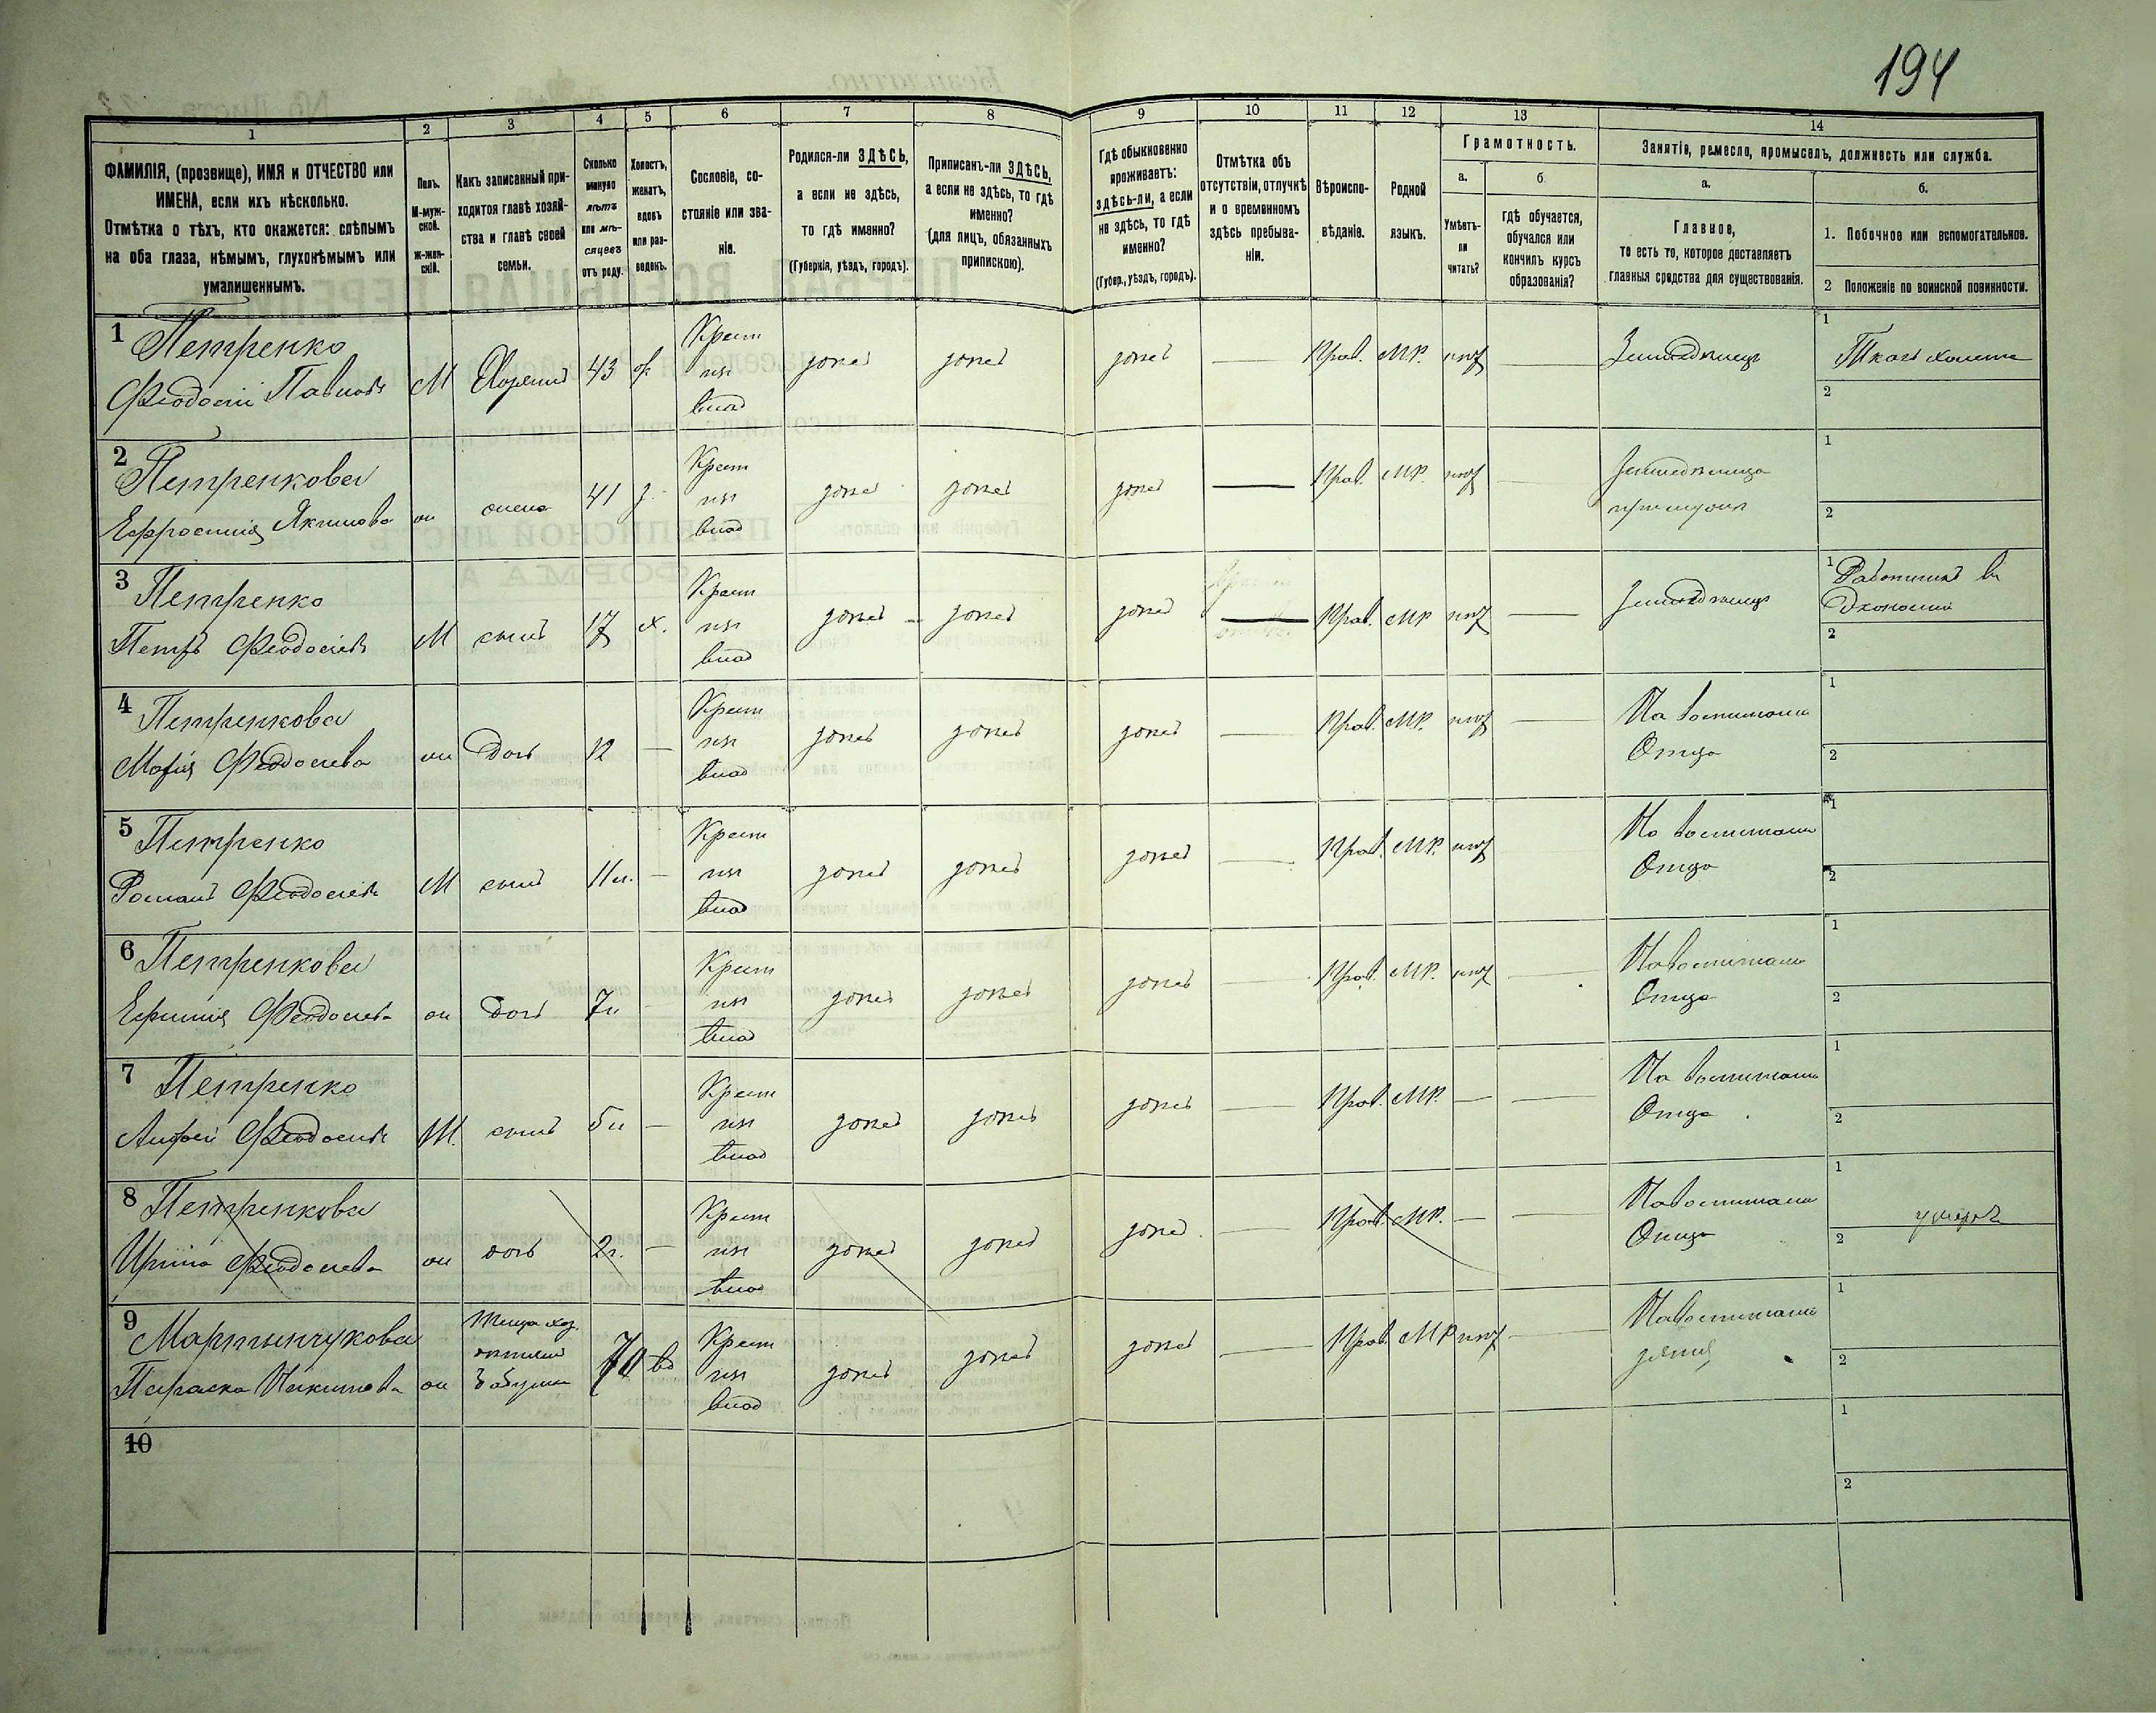 194
1
2
3
4
5
6
7
8
9
10
11
12
13
14
ФАМИЛІЯ, (прозвище), ИМЯ и ОТЧЕСТВО или
ИМЕНА, если ихъ нѣсколько.
Отмѣтка о тѣхъ, кто окажется: слѣпымъ
на оба глаза, нѣмымъ, глухонѣмымъ или
умалишеннымъ.
Полъ.
М-муж-
ской.
Ж-жен-
скій.
Какъ записанный при-
ходится главѣ хозяй-
ства и главѣ своей
семьи.
Сколько
минуло
лѣтъ
или мѣ-
сяцевъ
отъ роду.
Холостъ,
женатъ,
вдовъ
или раз-
веденъ.
Сословіе, со-
стояніе или зва-
ніе.
Родился-ли ЗДѢСЬ,
а если не здѣсь,
то гдѣ именно?
(Губернія, уѣздъ, городъ).
Приписанъ-ли ЗДѢСЬ,
а если не здѣсь, то гдѣ
именно?
(для лицъ, обязанныхъ
припискою).
Гдѣ обыкновенно
проживаетъ:
здѣсь-ли, а если
не здѣсь, то гдѣ
именно?
(Губер., уѣздъ, городъ).
Отмѣтка объ
отсутствіи, отлучкѣ
и о временномъ
здѣсь пребыва-
ніи.
Вѣроиспо-
вѣданіе.
Родной
языкъ.
Грамотность.
а.
Умѣетъ-
ли
читать?
б.
гдѣ обучается,
обучался или
кончилъ курсъ
образованія?
Занятіе, ремесло, промыселъ, должность или служба.
а.
Главное,
то есть то, которое доставляетъ
главныя средства для существованія.
б.
1. Побочное или вспомогательное.
2 Положеніе по воинской повинности.
1 Петренко
Феодосій Павловъ
М Хозяинъ 43 Крест
здѣсь здѣсь здѣсь — Прав. МР. нѣт — Земледѣлецъ
1 Ткачъ холста
2
2 Петренкова
Ефросинія Якимова
ж жена 41 з. Крест
здѣсь здѣсь здѣсь — Прав. МР. нѣт — Земледѣлица
при мужѣ
1
2
3 Петренко
Петръ Феодосіевъ
М сынъ 17 х. Крест
здѣсь здѣсь здѣсь — Прав. МР нѣт — Земледѣлецъ
1 Работникъ въ
Экономіи
2
4 Петренкова
Марія Феодосіева
ж дочь 12 — Крест
здѣсь здѣсь здѣсь — Прав. МР. нѣт — На воспитаніи
Отца
1
2
5 Петренко
Романъ Феодосіевъ
М сынъ 11 л. — Крест
здѣсь здѣсь здѣсь — Прав. МР. нѣт На воспитаніи
Отца
1
2
6 Петренкова
Ефимія Феодосіева
ж дочь 7 л — Крест
здѣсь здѣсь здѣсь — Прав. МР. нѣт — На воспитаніи
Отца
1
2
7 Петренко
Андрей Феодосіевъ
М. сынъ 5 л — Крест
здѣсь здѣсь здѣсь — Прав. МР. — — На воспитаніи
Отца
1
2
8 Петренкова
Ирина Феодосіева
ж дочь 2 г. — Крест
здѣсь здѣсь здѣсь — Прав. МР. — — На воспитаніи
Отца
1
умерла
2
9 Мартынчукова
Параска Никитова
ж Теща хоз.
дѣтямъ
бабушка
70 вд Крест
здѣсь здѣсь здѣсь — Прав. МР нѣт — На воспитаніи
зятя
1
2
10
1
2